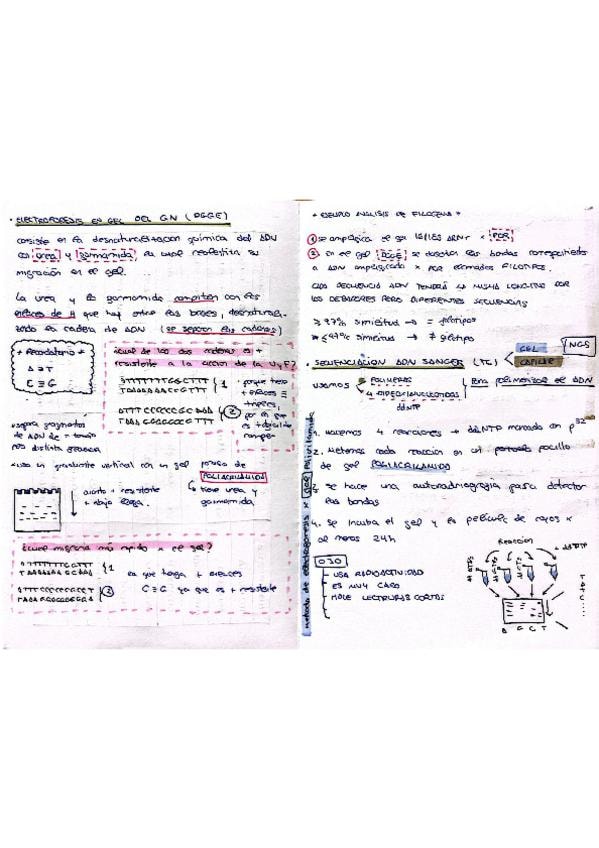 · ELECTROFORESIS EN GEL DEL GN (DGGE)
consiste en la desnaturalización química del ADN
con urea y formamida la cual realentiza su
migración en el gel.
La urea y la formamida compiten con los
enlaces de H que hay entre las bases, desnaturali-
zando la cadena de ADN (se separan las cadenas)
* Recordatorio *
A = T
C ≡ G
¿cual de las dos cadenas es +
resistente a la acción de la U y F?
1
2
· porque tiene
+ enlaces ≡
triples,
por lo que
es + difícil de
romper
*separa fragmentos
de ADN de = tamaño
pero distinta secuencia
*uso un gradiente vertical con un gel
de
POLIACRILAMIDA
↳ tiene urea y
formamida
cuanto + resistente
+ abajo llega.
¿cual migrará más rápido x el gel?
1
la que tenga + enlaces
2
C ≡ G ya que es + resistente
* EJEMPLO ANÁLISIS DE FILOGENIA *
① se amplifica el gen 16S/18S ARNr x PCR
② en el gel DGGE se observan las bandas correspondientes
a ADN amplificado x PCR llamados FILOTIPOS.
CADA SECUENCIA ADN TENDRÁ LA MISMA LONGITUD POR
LOS CEBADORES PERO DIFERENTES SECUENCIAS
≥ 97% similitud → = filotipos
≤ 97% similitud → ≠ filotipo
· SECUENCIACIÓN ADN SANGER (TC)
GEL
CAPILAR
NGS
USAMOS
POLIMERASA
4 DIDEOXINUCLEÓTIDOS
ddNTP
para polimerizar el ADN
1. Hacemos 4 reacciones → ddNTP marcado con P32
2. Metemos cada reacción en un pocillo
de gel POLIACRILAMIDA
3. se hace una autorradiografía para detectar
las bandas
4. se incuba el gel y la película de rayos x
al menos 24h
OJO
- USA RADIOACTIVIDAD
- ES MUY CARO
- LECTURAS CORTAS
Reacción
+ ddNTP
G C T